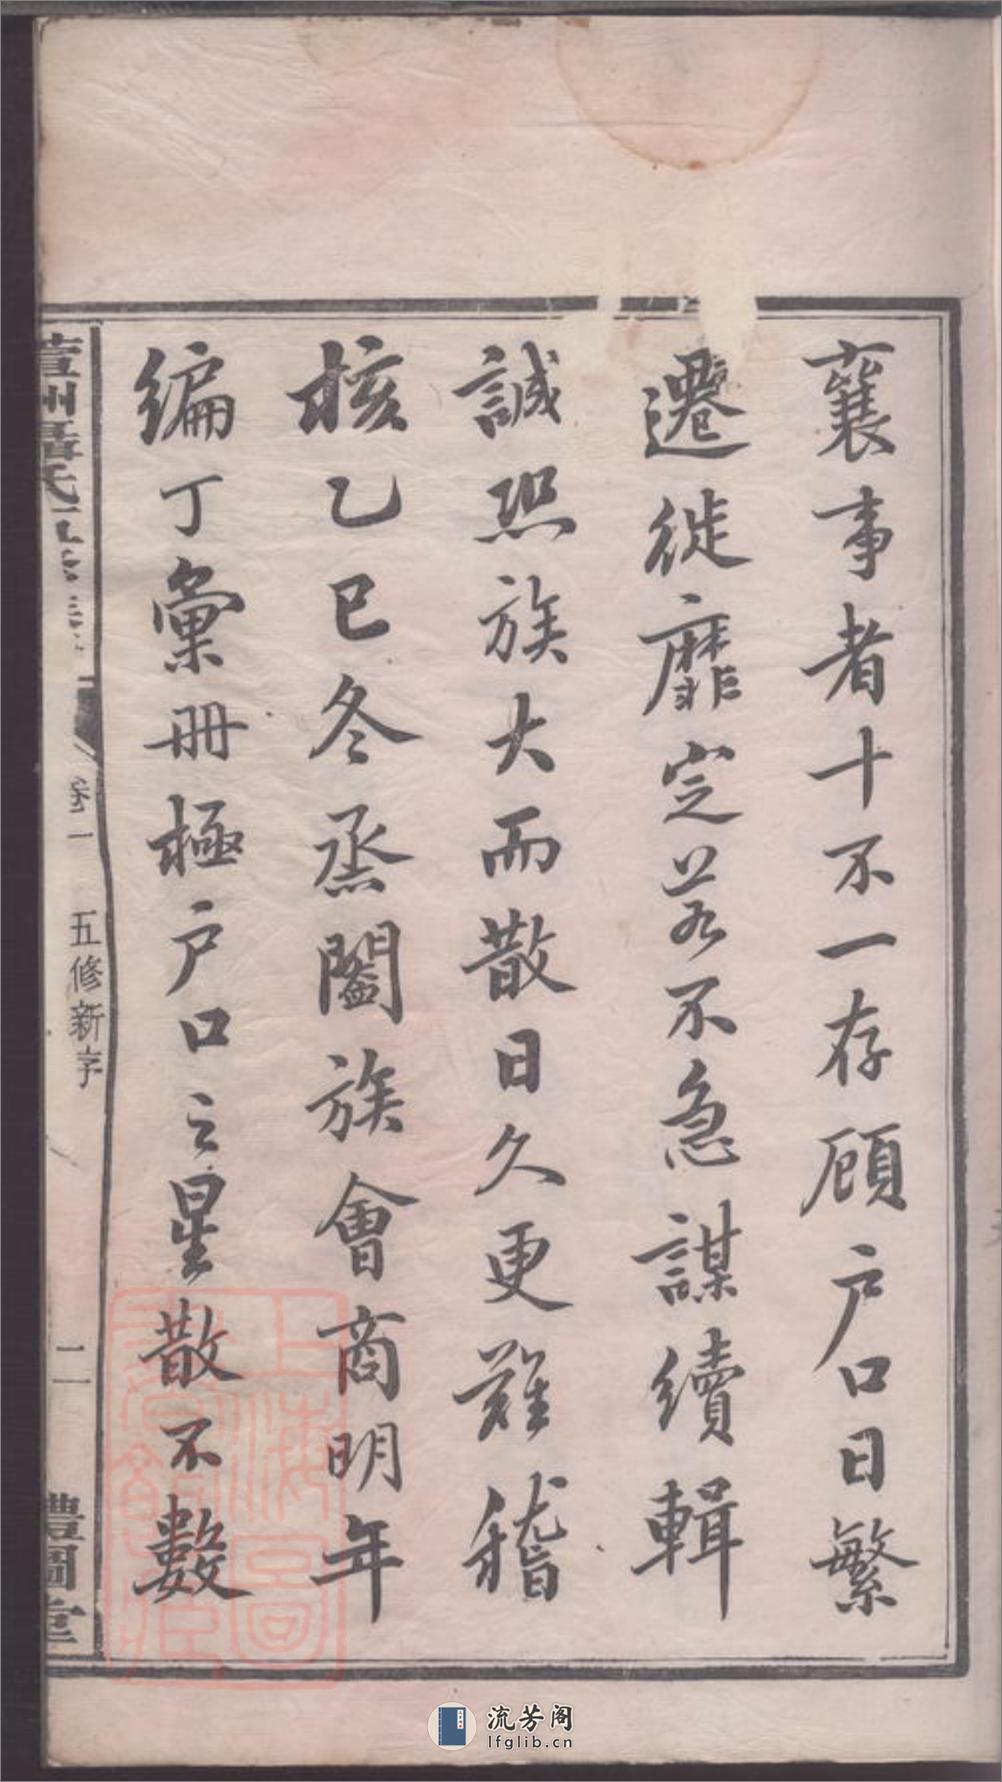 襄事者十不一存顾户口日繁
遷徙靡定若不急謀續輯
誠恐族大而散日久更難稽
核乙巳冬烝闔族會商明年
編丁彙册極户口之星散不數
氏五修
卷一
五修新序
二
禮圖堂
上海圖書館藏
流芳阁
lfglib.cn